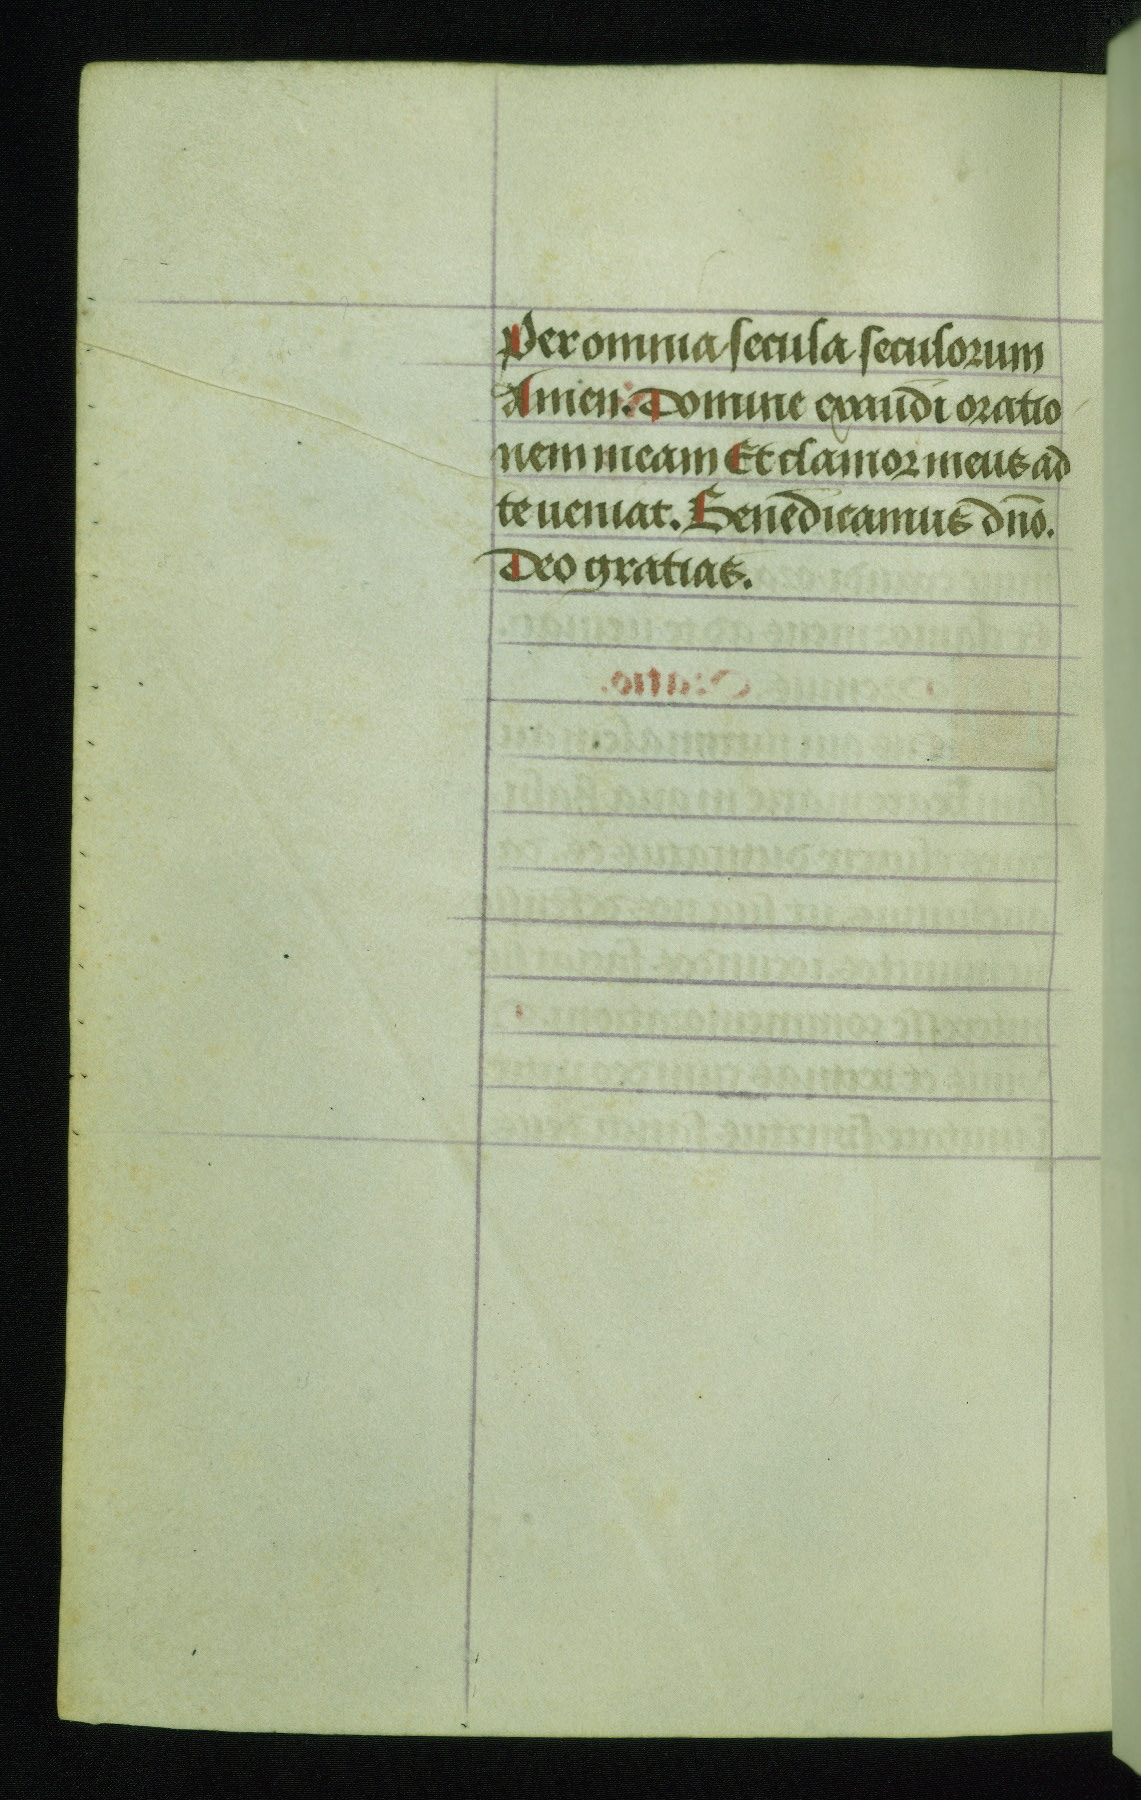 Per omnia secula seculorum
Amen. Domine exaudi oratio
nem meam Et clamor meus ad
te ueniat. Benedicamus dn̄o.
Deo gratias.